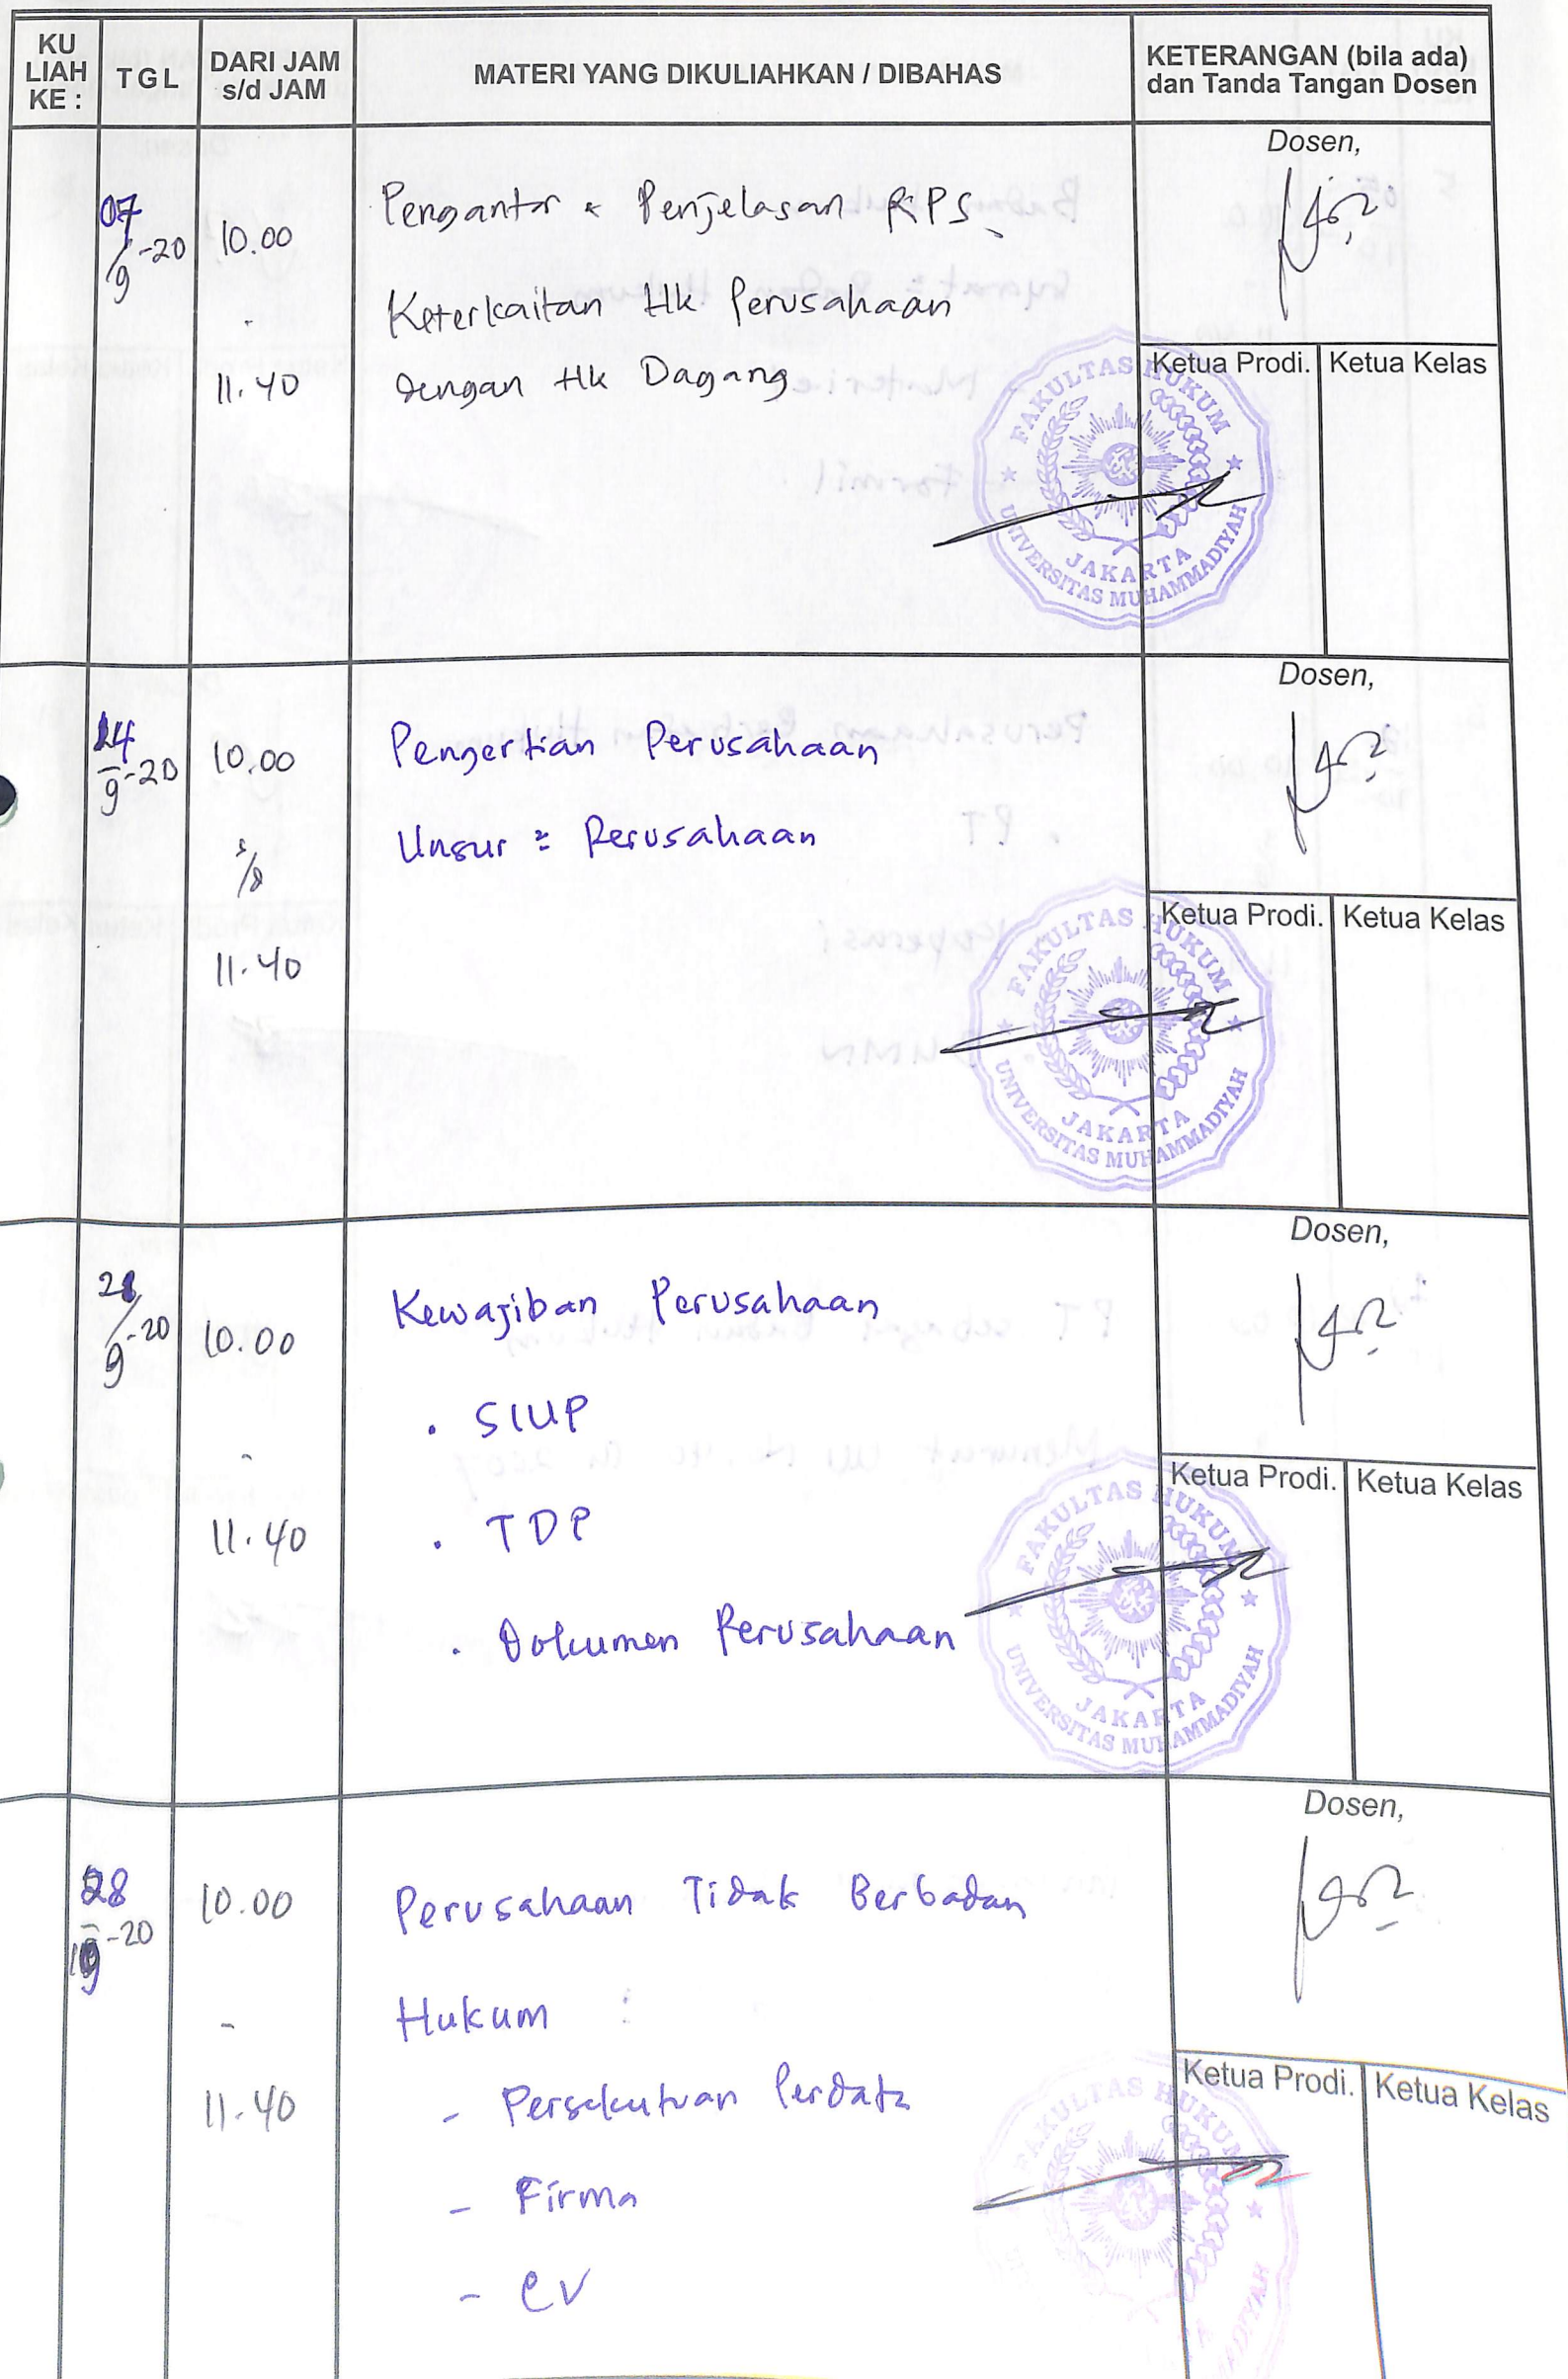 KU LIAH KE :
TGL
DARI JAM s/d JAM
MATERI YANG DIKULIAHKAN / DIBAHAS
KETERANGAN (bila ada) dan Tanda Tangan Dosen
07/9-20
10.00
-
11.40
Pengantar & Penjelasan RPS
Keterkaitan Hk Perusahaan
dengan Hk Dagang
Dosen,
Ketua Prodi.
Ketua Kelas
FAKULTAS HUKUM
UNIVERSITAS MUHAMMADIYAH
JAKARTA
14/9-20
10.00
s/d
11.40
Pengertian Perusahaan
Unsur = Perusahaan
Dosen,
Ketua Prodi.
Ketua Kelas
FAKULTAS HUKUM
UNIVERSITAS MUHAMMADIYAH
JAKARTA
21/9-20
10.00
-
11.40
Kewajiban Perusahaan
. SIUP
. TDP
. Dokumen Perusahaan
Dosen,
Ketua Prodi.
Ketua Kelas
FAKULTAS HUKUM
UNIVERSITAS MUHAMMADIYAH
JAKARTA
28/9-20
10.00
-
11.40
Perusahaan Tidak Berbadan
Hukum :
- Persekutuan Perdata
- Firma
- CV
Dosen,
Ketua Prodi.
Ketua Kelas
FAKULTAS HUKUM